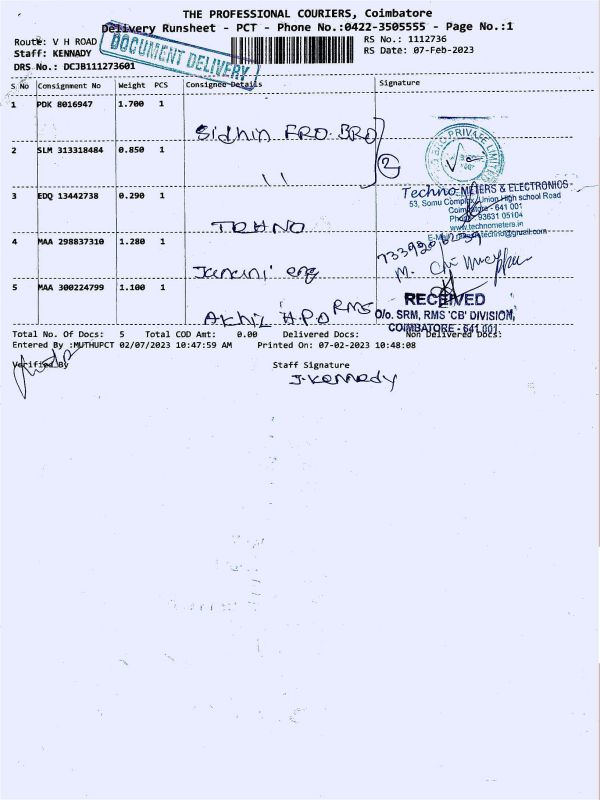 THE PROFESSIONAL COURIERS, Coimbatore
Delivery Runsheet - PCT - Phone No.:0422-3505555 - Page No.:1
Route: V H ROAD
RS No.: 1112736
Staff: KENNADY
RS Date: 07-Feb-2023
DRS No.: DCJB111273601
DOCUMENT DELIVERY
S.No Consignment No Weight PCS Consignee Details Signature
1 PDK 8016947 1.700 1
Sidhin FRO.BRO
2 SLM 313318484 0.850 1
11
2
PRIVATE LIMITED
3 EDQ 13442738 0.290 1
Techno METERS & ELECTRONICS
53, Somu Complex, Union High school Road
Coimbatore - 641 001
Phone: 93631 05104
www.technometers.in
TEHNO
4 MAA 298837310 1.280 1
Janani eng
M.
5 MAA 300224799 1.100 1
Akhil H.P.O RMS
RECEIVED
O/o. SRM, RMS 'CB' DIVISION,
COIMBATORE - 641 001
Total No. Of Docs: 5 Total COD Amt: 0.00 Delivered Docs: Non Delivered Docs:
Entered By :MUTHUPCT 02/07/2023 10:47:59 AM Printed On: 07-02-2023 10:48:08
Verified By
Staff Signature
J.Kennady